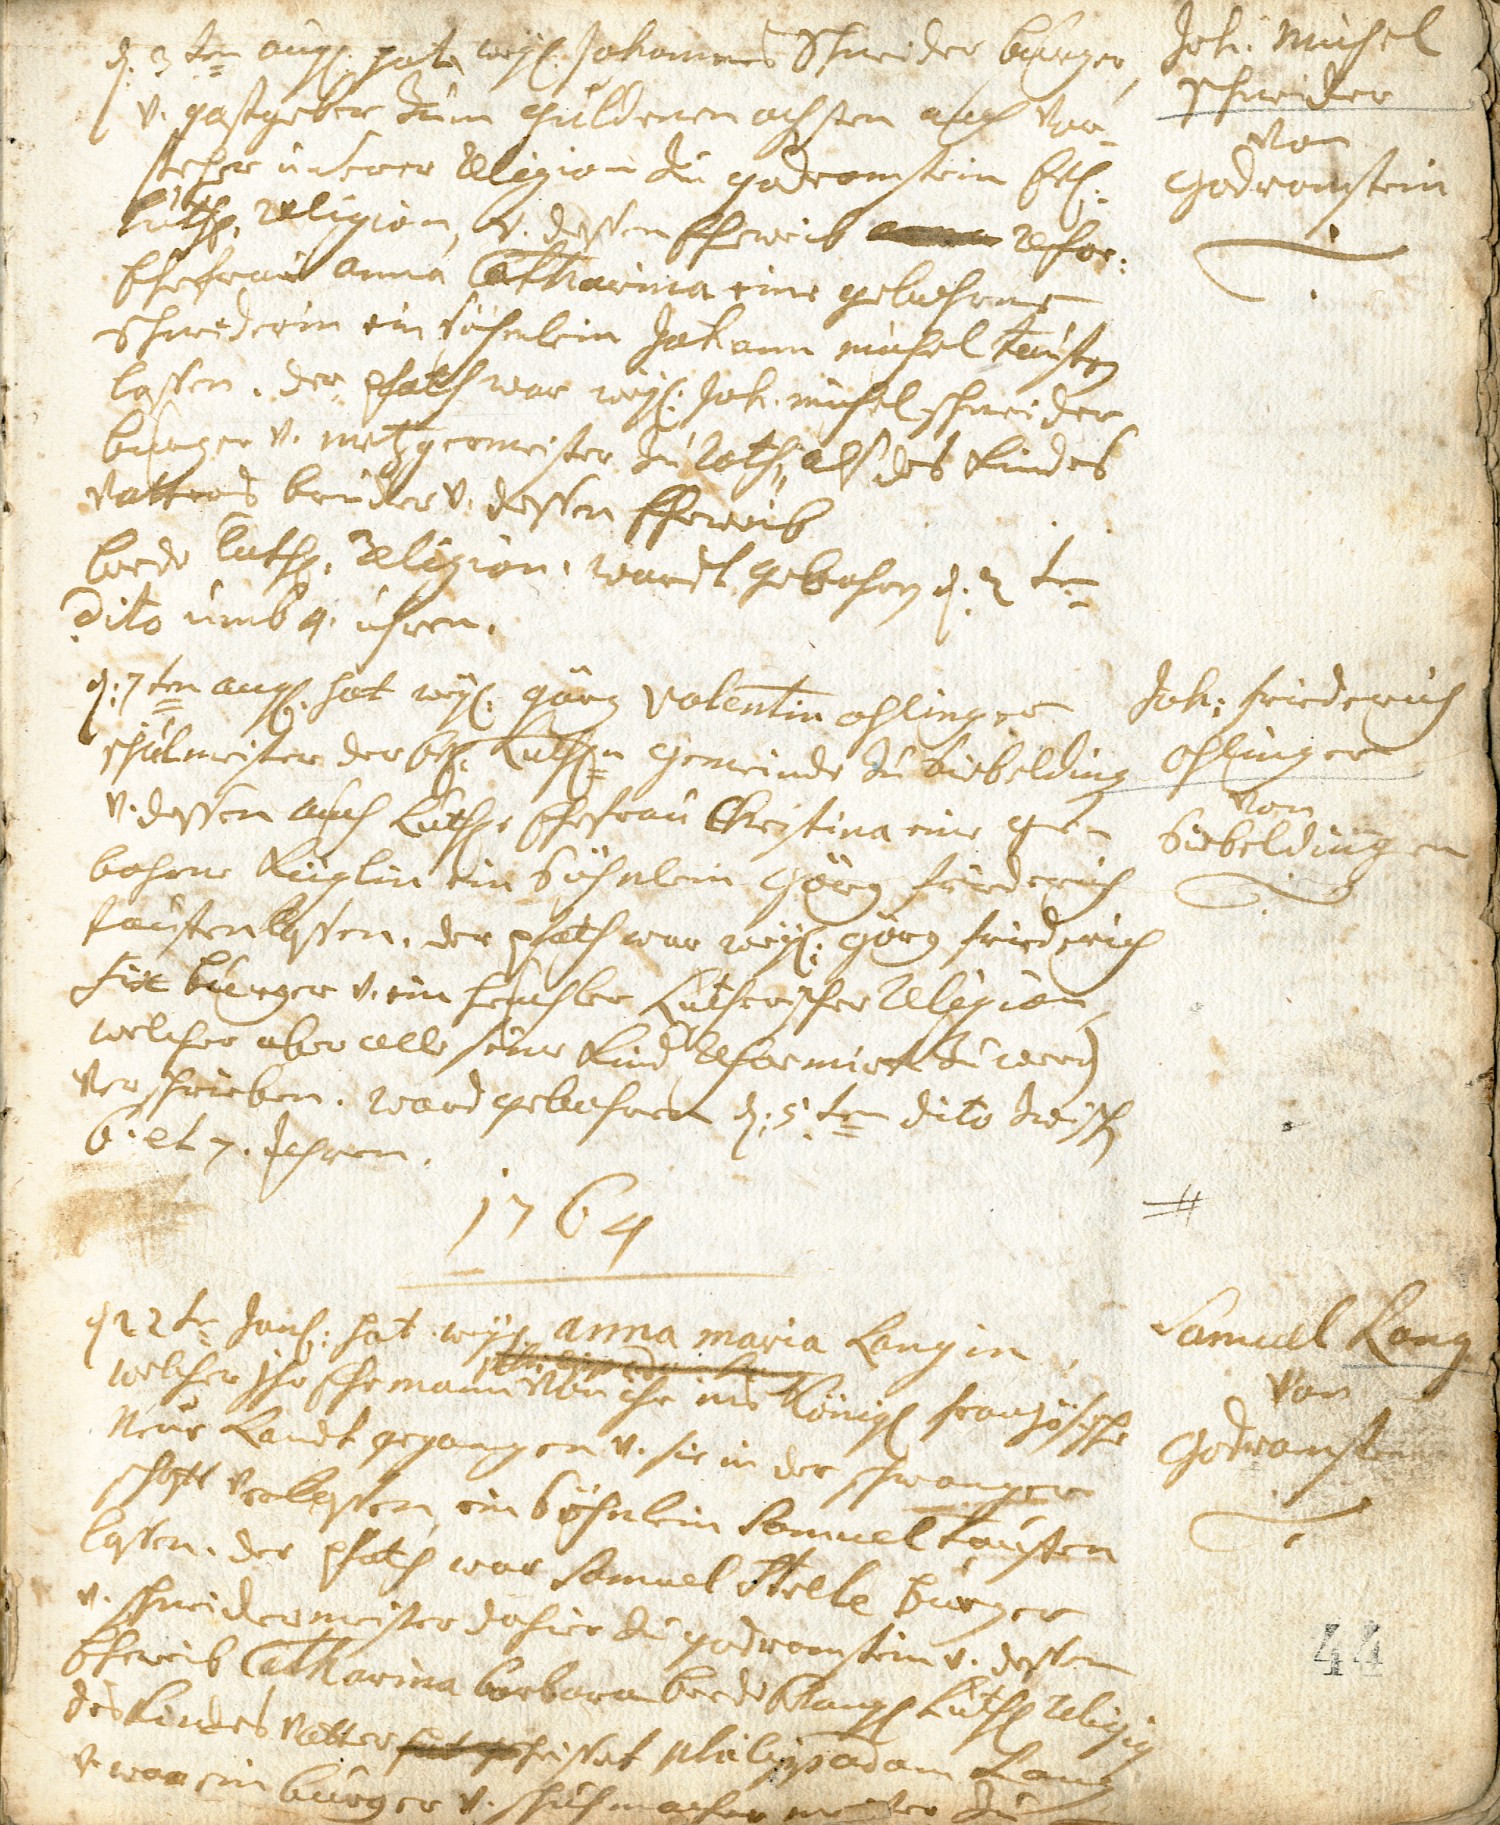 d. 3 ten aug. hat Johannes Schneider burger
v. gastgeber zum güldenen ochsen auch vor-
steher unserer Religion zu godramstein
luth. Religion, v. dessen Eheweib Refor:
Ehefrau anna Catharina eine gebohrne
Schneiderin ein söhnlein Johann michel tauffen
lassen. der pfath war Joh. michel schneider
burger v. metzgermeister zu als des Kindes
vatters bruder v. dessen Eheweib
beede luth. Religion. wardt gebohren d. 2 ten
dito umb 4. uhren.
Joh. Michel
schneider
von
godramstein
d. 7 ten aug. hat görg Valentin ohlinger
schulmeister der luth. gemeinde zu Siebelding
v. dessen auch Luth. Ehefrau Christina eine ge-
bohrne ein Söhnlein Görg friederich
tauffen lassen. der pfath war görg friederich
burger v. ein Lutherischer Religion,
welcher aber alle seine Kind Reformirt zu
verschrieben. ward gebohren d. 5 ten dito zwisch
6. et 7. uhren.
Joh. friederich
ohlinger
von
Siebeldingen
1764
d 22 te Jan. hat anna maria Langin
welcher ihr Ehemann von ihr ins Königl französische
neue Landt gegangen v. sie in der schwanger
schafft verlassen, ein Söhnlein Samuel tauffen
lassen. der pfath war Samuel burger
v. schneidermeister dahier zu godramstein v. dessen
Eheweib Catharina barbara beede Luth Religion
des Kindes vatter heisset philipp adam Lang
v. war ein burger v. schuhmacher meister zu
Samuel Lang
von
Godramstein
44